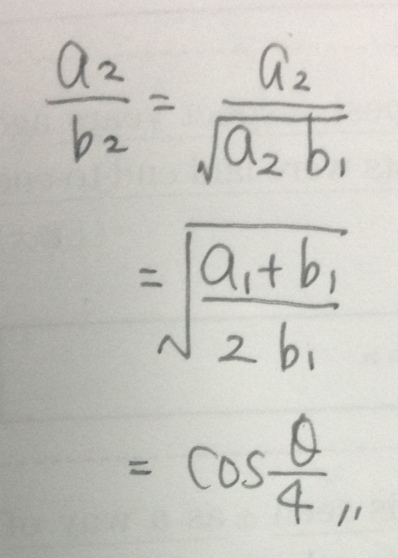 a₂/b₂ = a₂/√(a₂ b₁)
= √((a₁+b₁)/(2 b₁))
= cos θ/4 〃